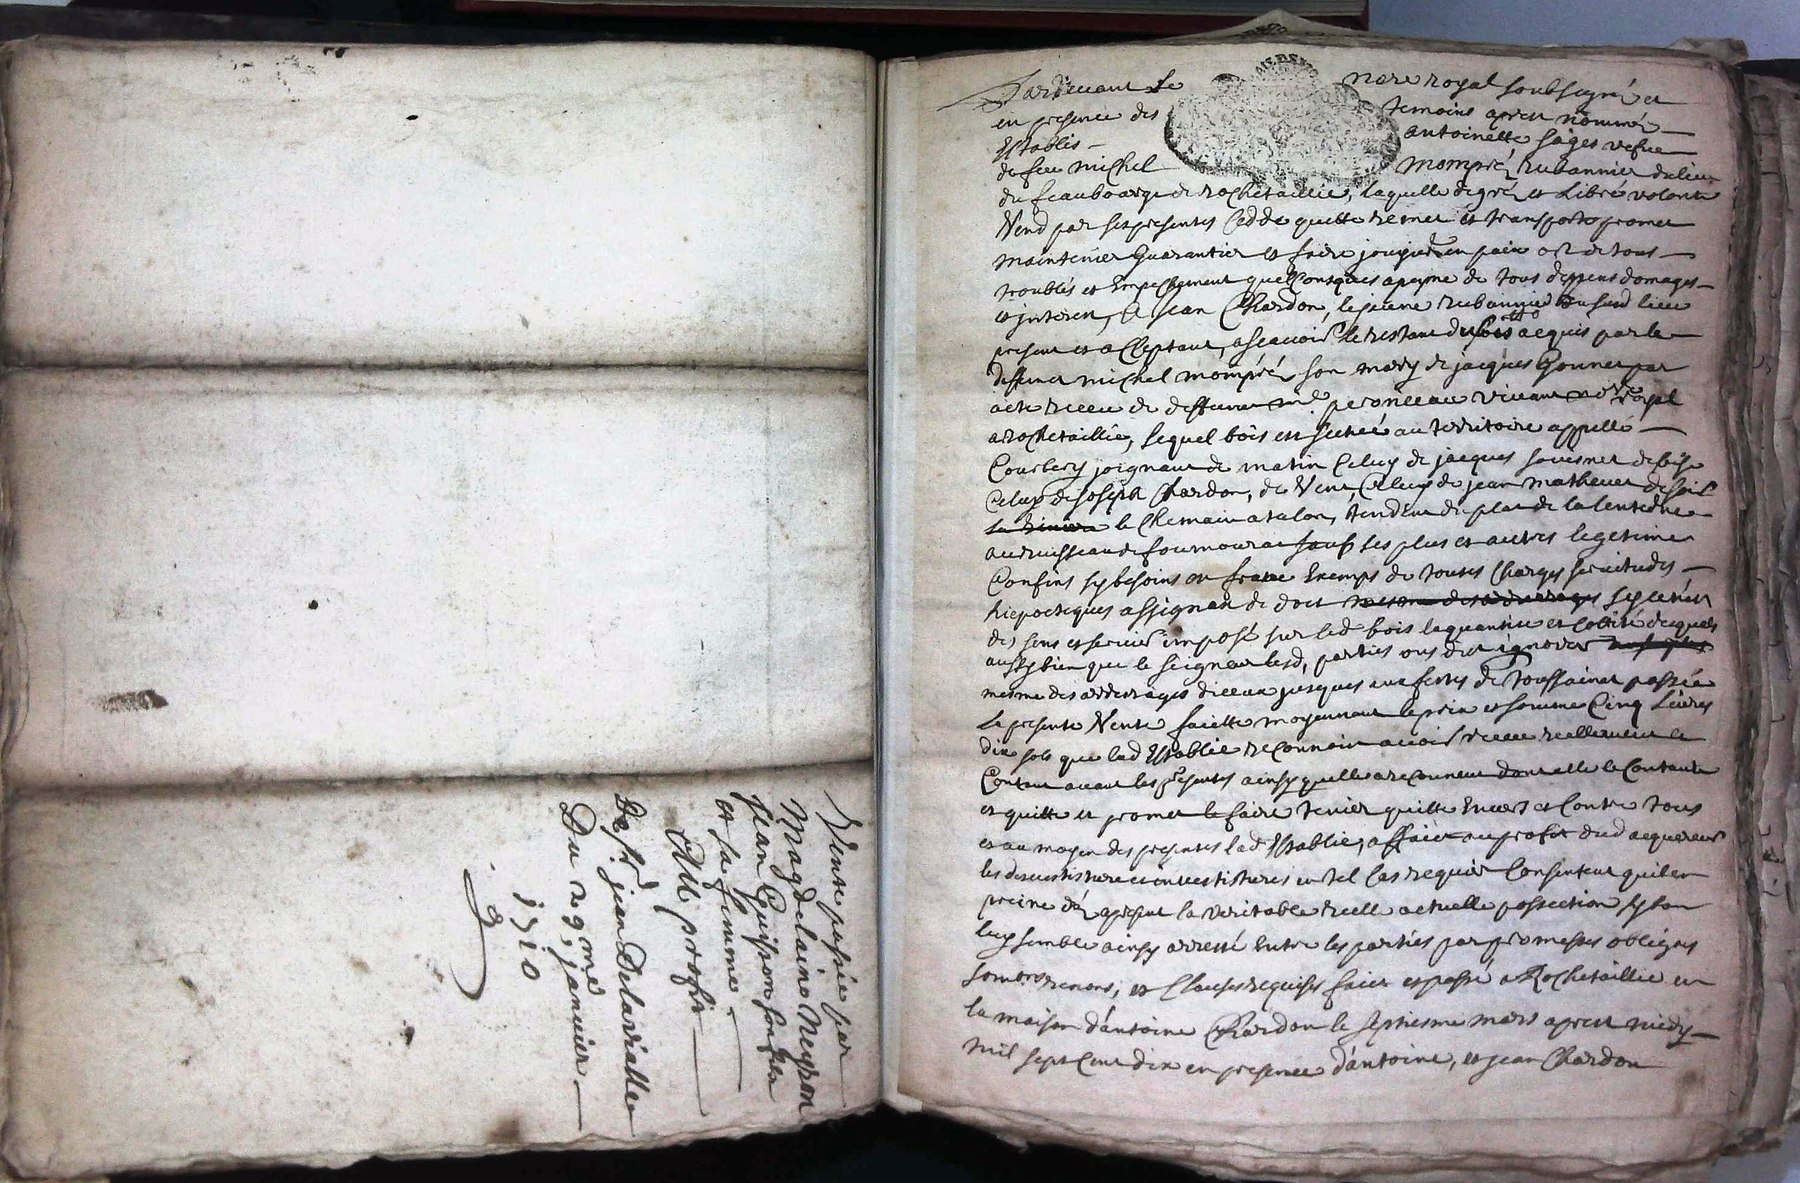 Vente passée par
Magdelaine Neyron
Jean Guisson son fils
et sa femme
Au proffit
De sr jean Delarialle
Du 29me janvier
1710
Pardevant Le nore royal soubsigné et
en presence des temoins apres nommés
Establie antoinette sages vefue
de feu michel mompié rubannier du lieu
du feaubourg de rochetaillié, laquelle de gré et libre volonté
Vend par ses presentes cedde quitte remet et transporte promet
maintenier guarantier et faire jouyr en paix et de tous
troublés et Empechement quelconques a peyne de tous depens domages
et interest, a Jean Chardon, le jeune rubannier dud lieu
present et acceptant, a scavoir le restant du bois acquis par le
deffunct michel mompié son mary de jacques gonnet par
acte receu de deffunct me peronneau vivant nore royal
a rochetaillié, lequel bois est scitué au territoire appellé
Courbery joignant de matin celuy de jacques de bise
celuy de joseph Chardon, de Vent, celuy de jean matheuet de soir
le Chemain tendant du plat de la
au ruisseau de sauf ses plus et autres legetime
Confins sy besoins est franc Exemps de toutes charges servitudes
hiepocteques assignat de dot sy ce n'est
des sens et servis imposé sur led bois la quantité et cottité desquels
aussy bien que le seigneur lesd, parties ont dit ignorer
mesme des arderrages diceux jusques aux festes de Toussainct passée
la presente Vente faicte moyennant le prix et somme Cinq Livres
dix sols que lad Establie reconnoit avoir receu reellement et
Contant avant les presentes ainsy quelle a reconneu dont elle se contante
et quitte et promet le faire tenier quitte Envers et Contre tous
et au moyen des presentes lad Establie, a faict au profit dud acquereur
les desvestisture et investistures en tel Cas requis Consentant quil en
preine dez apresent la veritable reelle actuelle possection sy bon
luy semble ainsy arresté Entre les parties par promesses obligés
renons, et Clauses requises faict et passé a Rochetaillié en
la maison d'antoine Chardon le septiesme mars apres midy
mil sept Cent dix en presence d'antoine, et jean Chardon